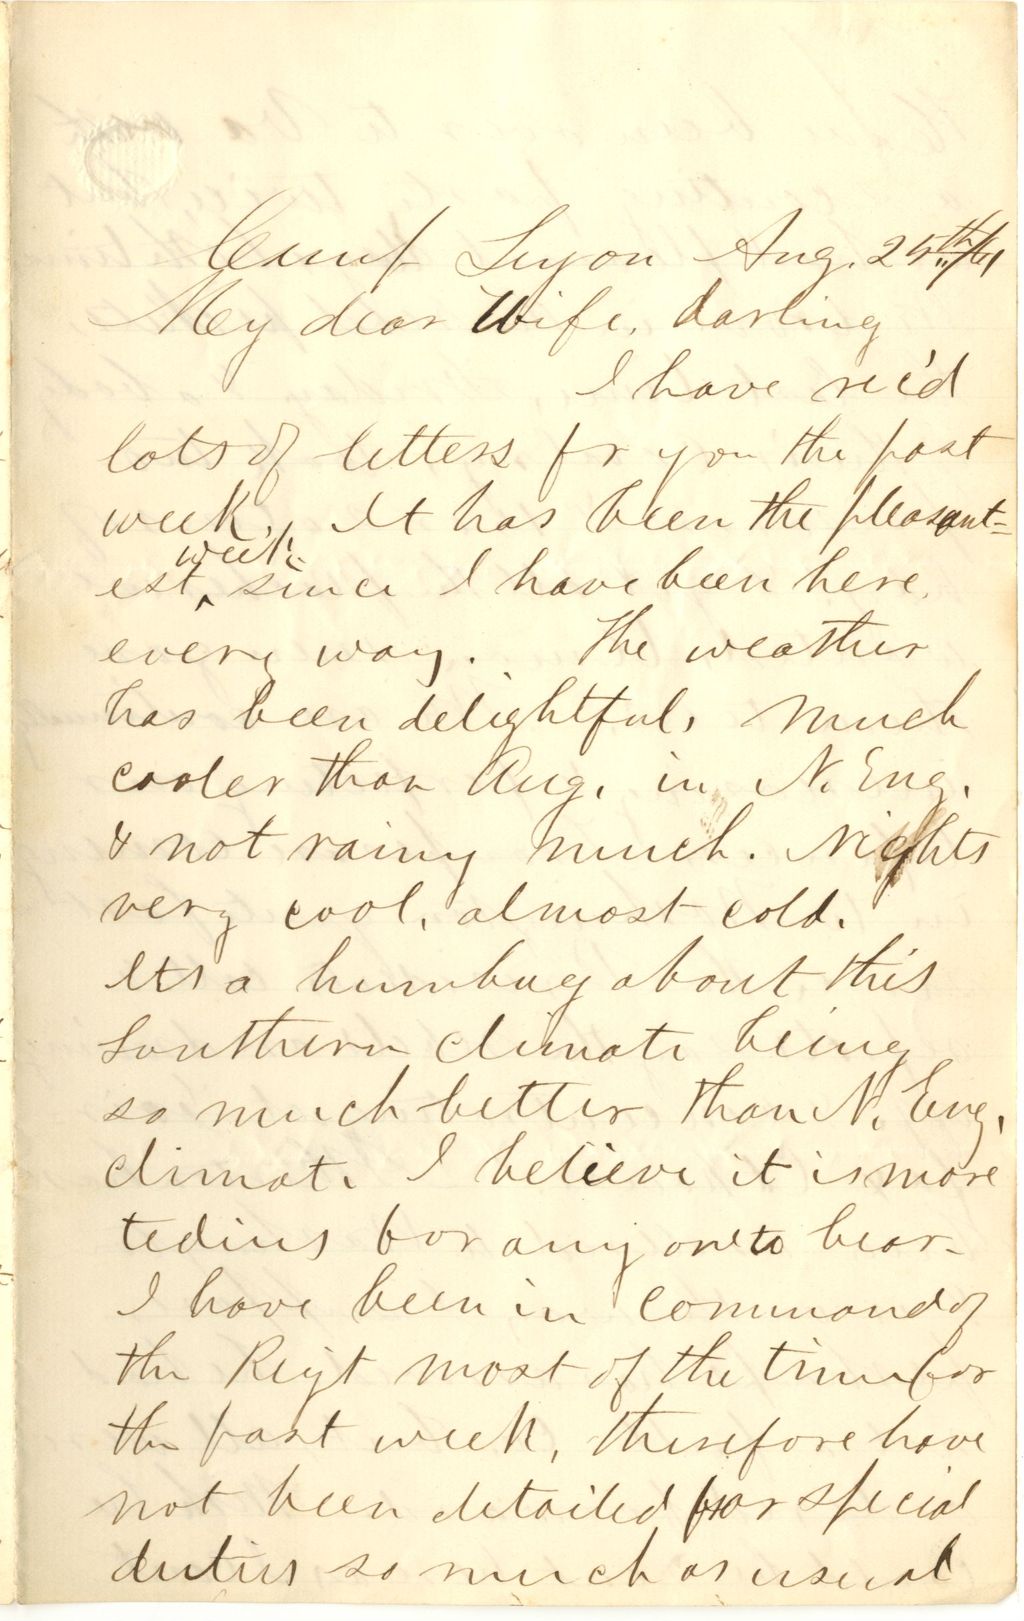 Camp Lyon Aug. 25th/61
My dear Wife, darling
I have rec'd
lots of letters fr you the past
week. It has been the pleasant-
est week since I have been here,
every way. The weather
has been delightful, much
cooler than Aug. in N. Eng.
& not rainy much. Nights
very cool, almost cold.
Its a humbug about this
Southern climate being
so much better than N. Eng.
climate I believe it is more
tedius for any one to bear-
I have been in command of
the Regt most of the time for
the past week, therefore have
not been detailed for special
duties so much as usual